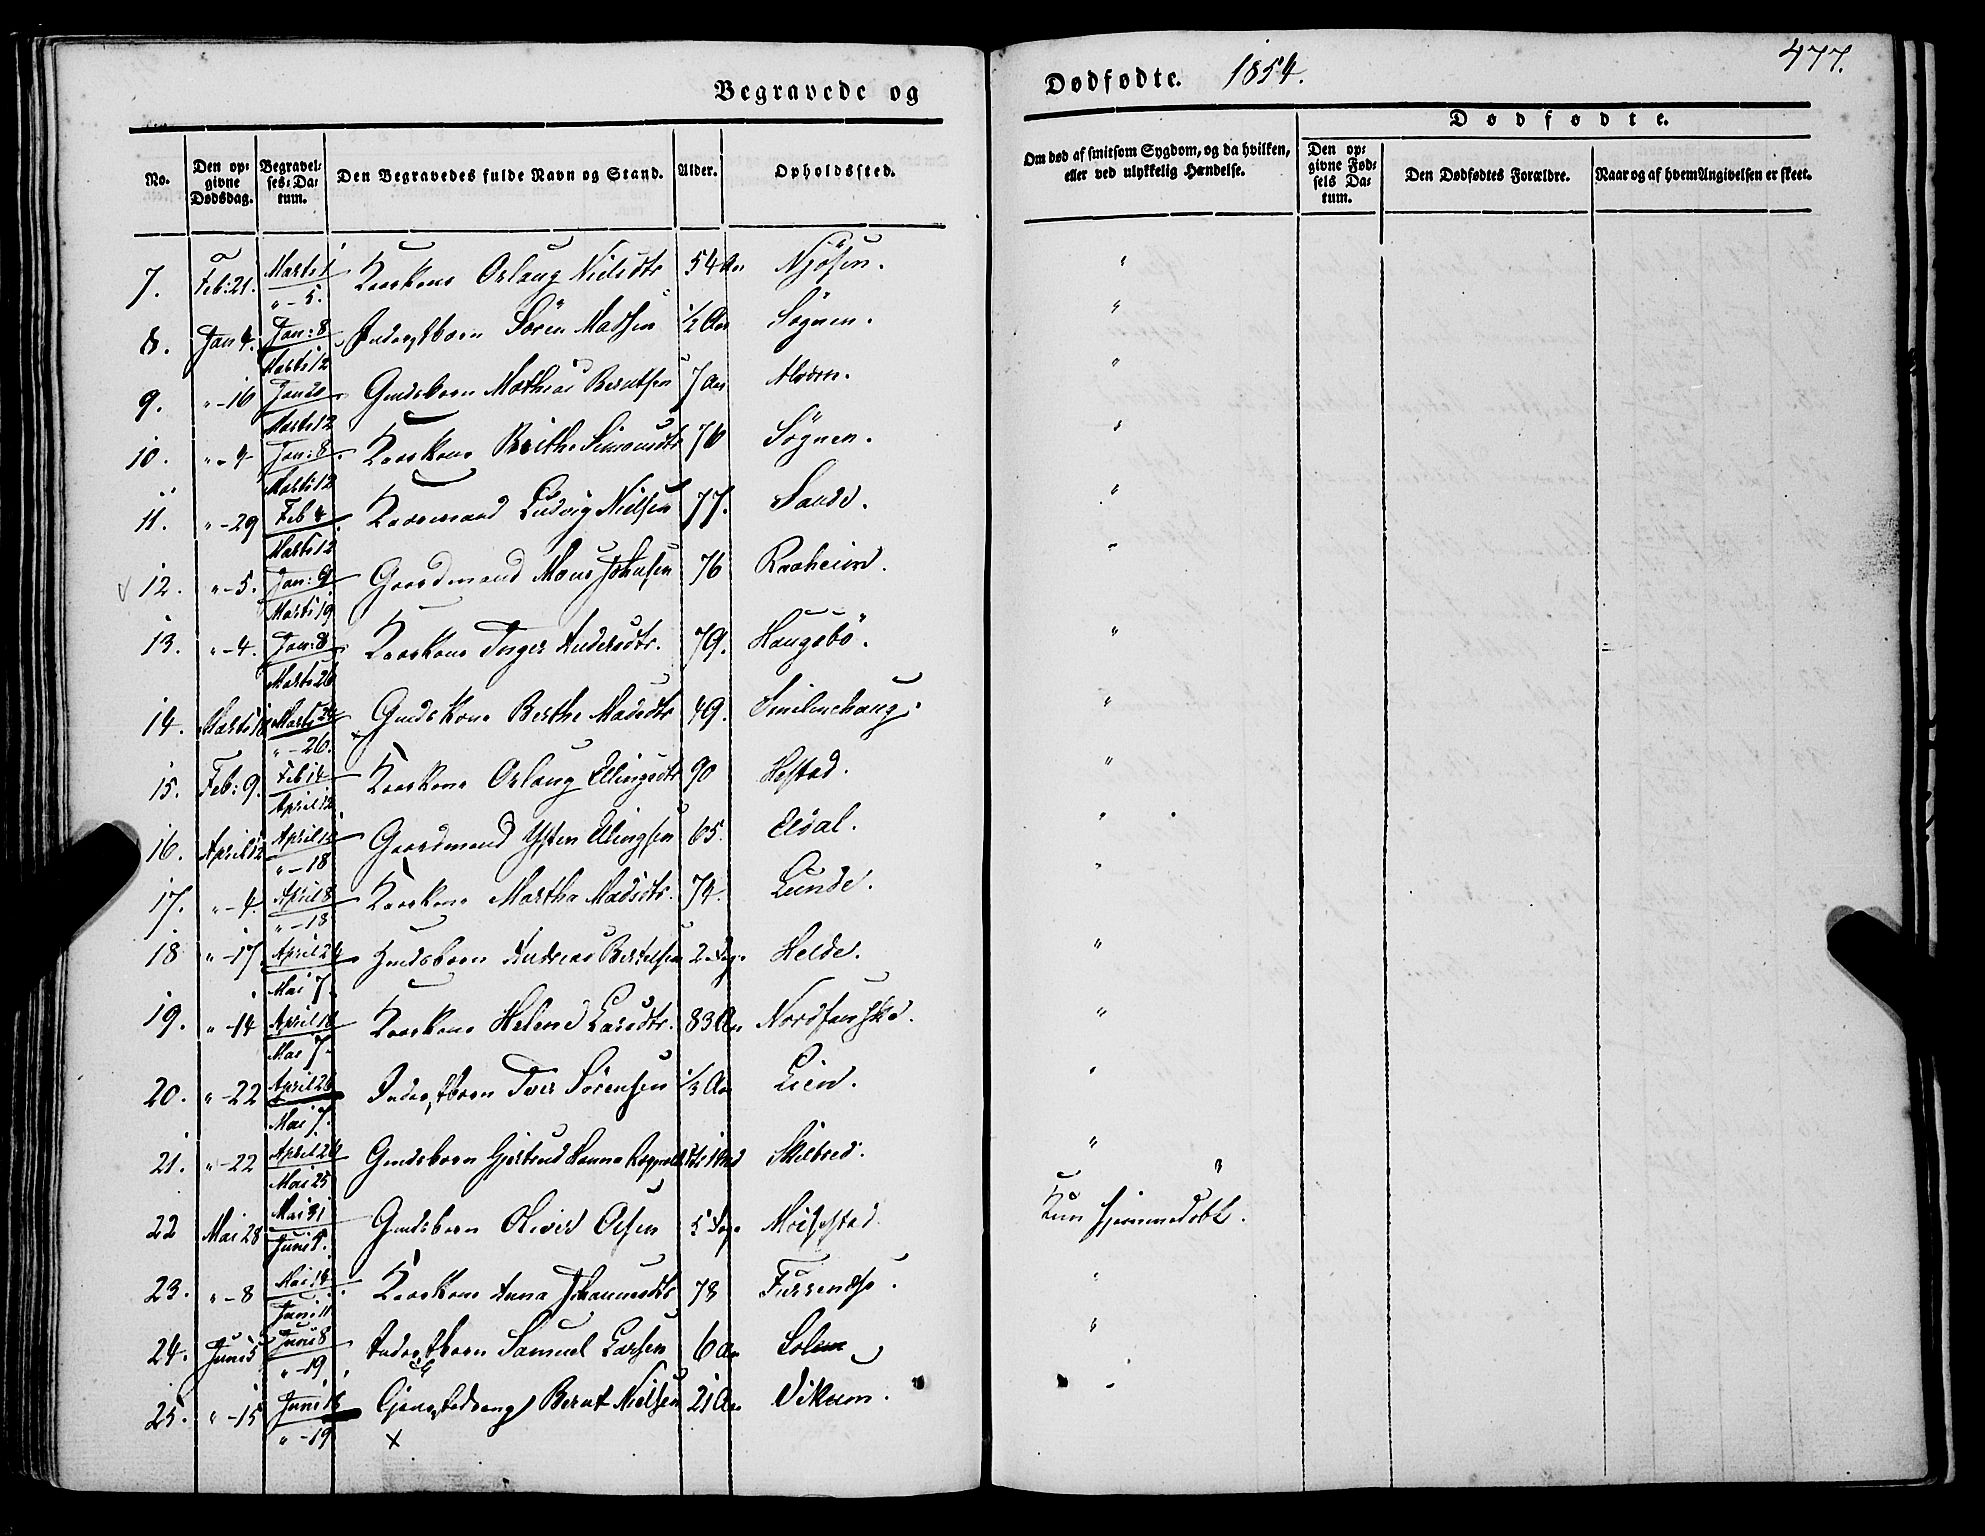 477.
Begravede og Dødfødte. 1854.
No. | Den opgivne Dødsdag. | Begravelses-Datum. | Den Begravedes fulde Navn og Stand. | Alder. | Opholdssted. | Om død af smitsom Sygdom, og da hvilken, eller ved ulykkelig Hændelse. | Dødfødte. | Den opgivne Fødsels Datum. | Den Dødfødtes Forældre. | Naar og af hvem Angivelsen er skeet.
7. Feb: 21. Marts 1 / " - 5. Kaarkone Oslaug Nielsdtr 54 Aar Njøsen. "
8. Jan 4. Jan: 8 / Marts 12 Inderstbarn Sören Madsen ½ Aar Søgnen. "
9. " - 16 Jan 20 / Marts 12 Gmdsbarn Mathias Berntsen 7 Aar "
10. " - 4 Jan: 8 / Marts 12 Kaarkone Brithe Simonsdtr 76 Søgnen. "
11. " - 29 Feb 4 / Marts 12 Kaarmand Ludvig Nielsen 77. Sande. "
12. " - 5. Jan: 9 / Marts 19 Gaardmand Mons Johnsen 76 Raaheim. "
13. " - 4. Jan: 8 / Marts 26 Kaarkone Inger Andersdtr. 79. Haugsbö. "
14. Marts 18 Marts 24 / " - 26. Gmds Kone Berthe Madsdtr 49. Smilmehaug. "
15. Feb: 9. Feb 14 / April 12 Kaarkone Oslaug Ellingsdtr 90 Hestad. "
16. April 12 April 15 / " - 18 Gaardmand Ysten Ellingsen 65. Eldal. "
17. " - 4. April 8 / " - 18 Kaarkone Martha Madsdtr. 74. Lunde. "
18 " - 17. April 24 / Mai 7. Gmdsbarn Andreas Bertelsen 2 Dage Helde. "
19. " - 14 April 18 / Mai 7. Kaarkone Helene Larsdtr. 83 Aar Nordfanske. "
20. " - 22 April 26 / Mai 7. Inderstbarn Iver Sörensen ⅓ Aar Lien. "
21. " - 22 April 26 / Mai 25 Gmdsbarn Gjertrud Hanna Skilbred. "
22 Mai 28 Mai 31 / Juni 5. Gmdsbarn Oliver Olsen 5 Dage Moisestad. Kun hjemmedøbt.
23. " - 8 Mai 14 / Juni 11 Kaarkone Anna Johannesdtr 78 "
24. Juni 5 Juni 8 / " - 19 Inderstbarn Samuel Larsen 6 Aar "
25. " - 15 Juni 18 / " - 19 Bernt Nielsen 21 Aar Vikum. "
x